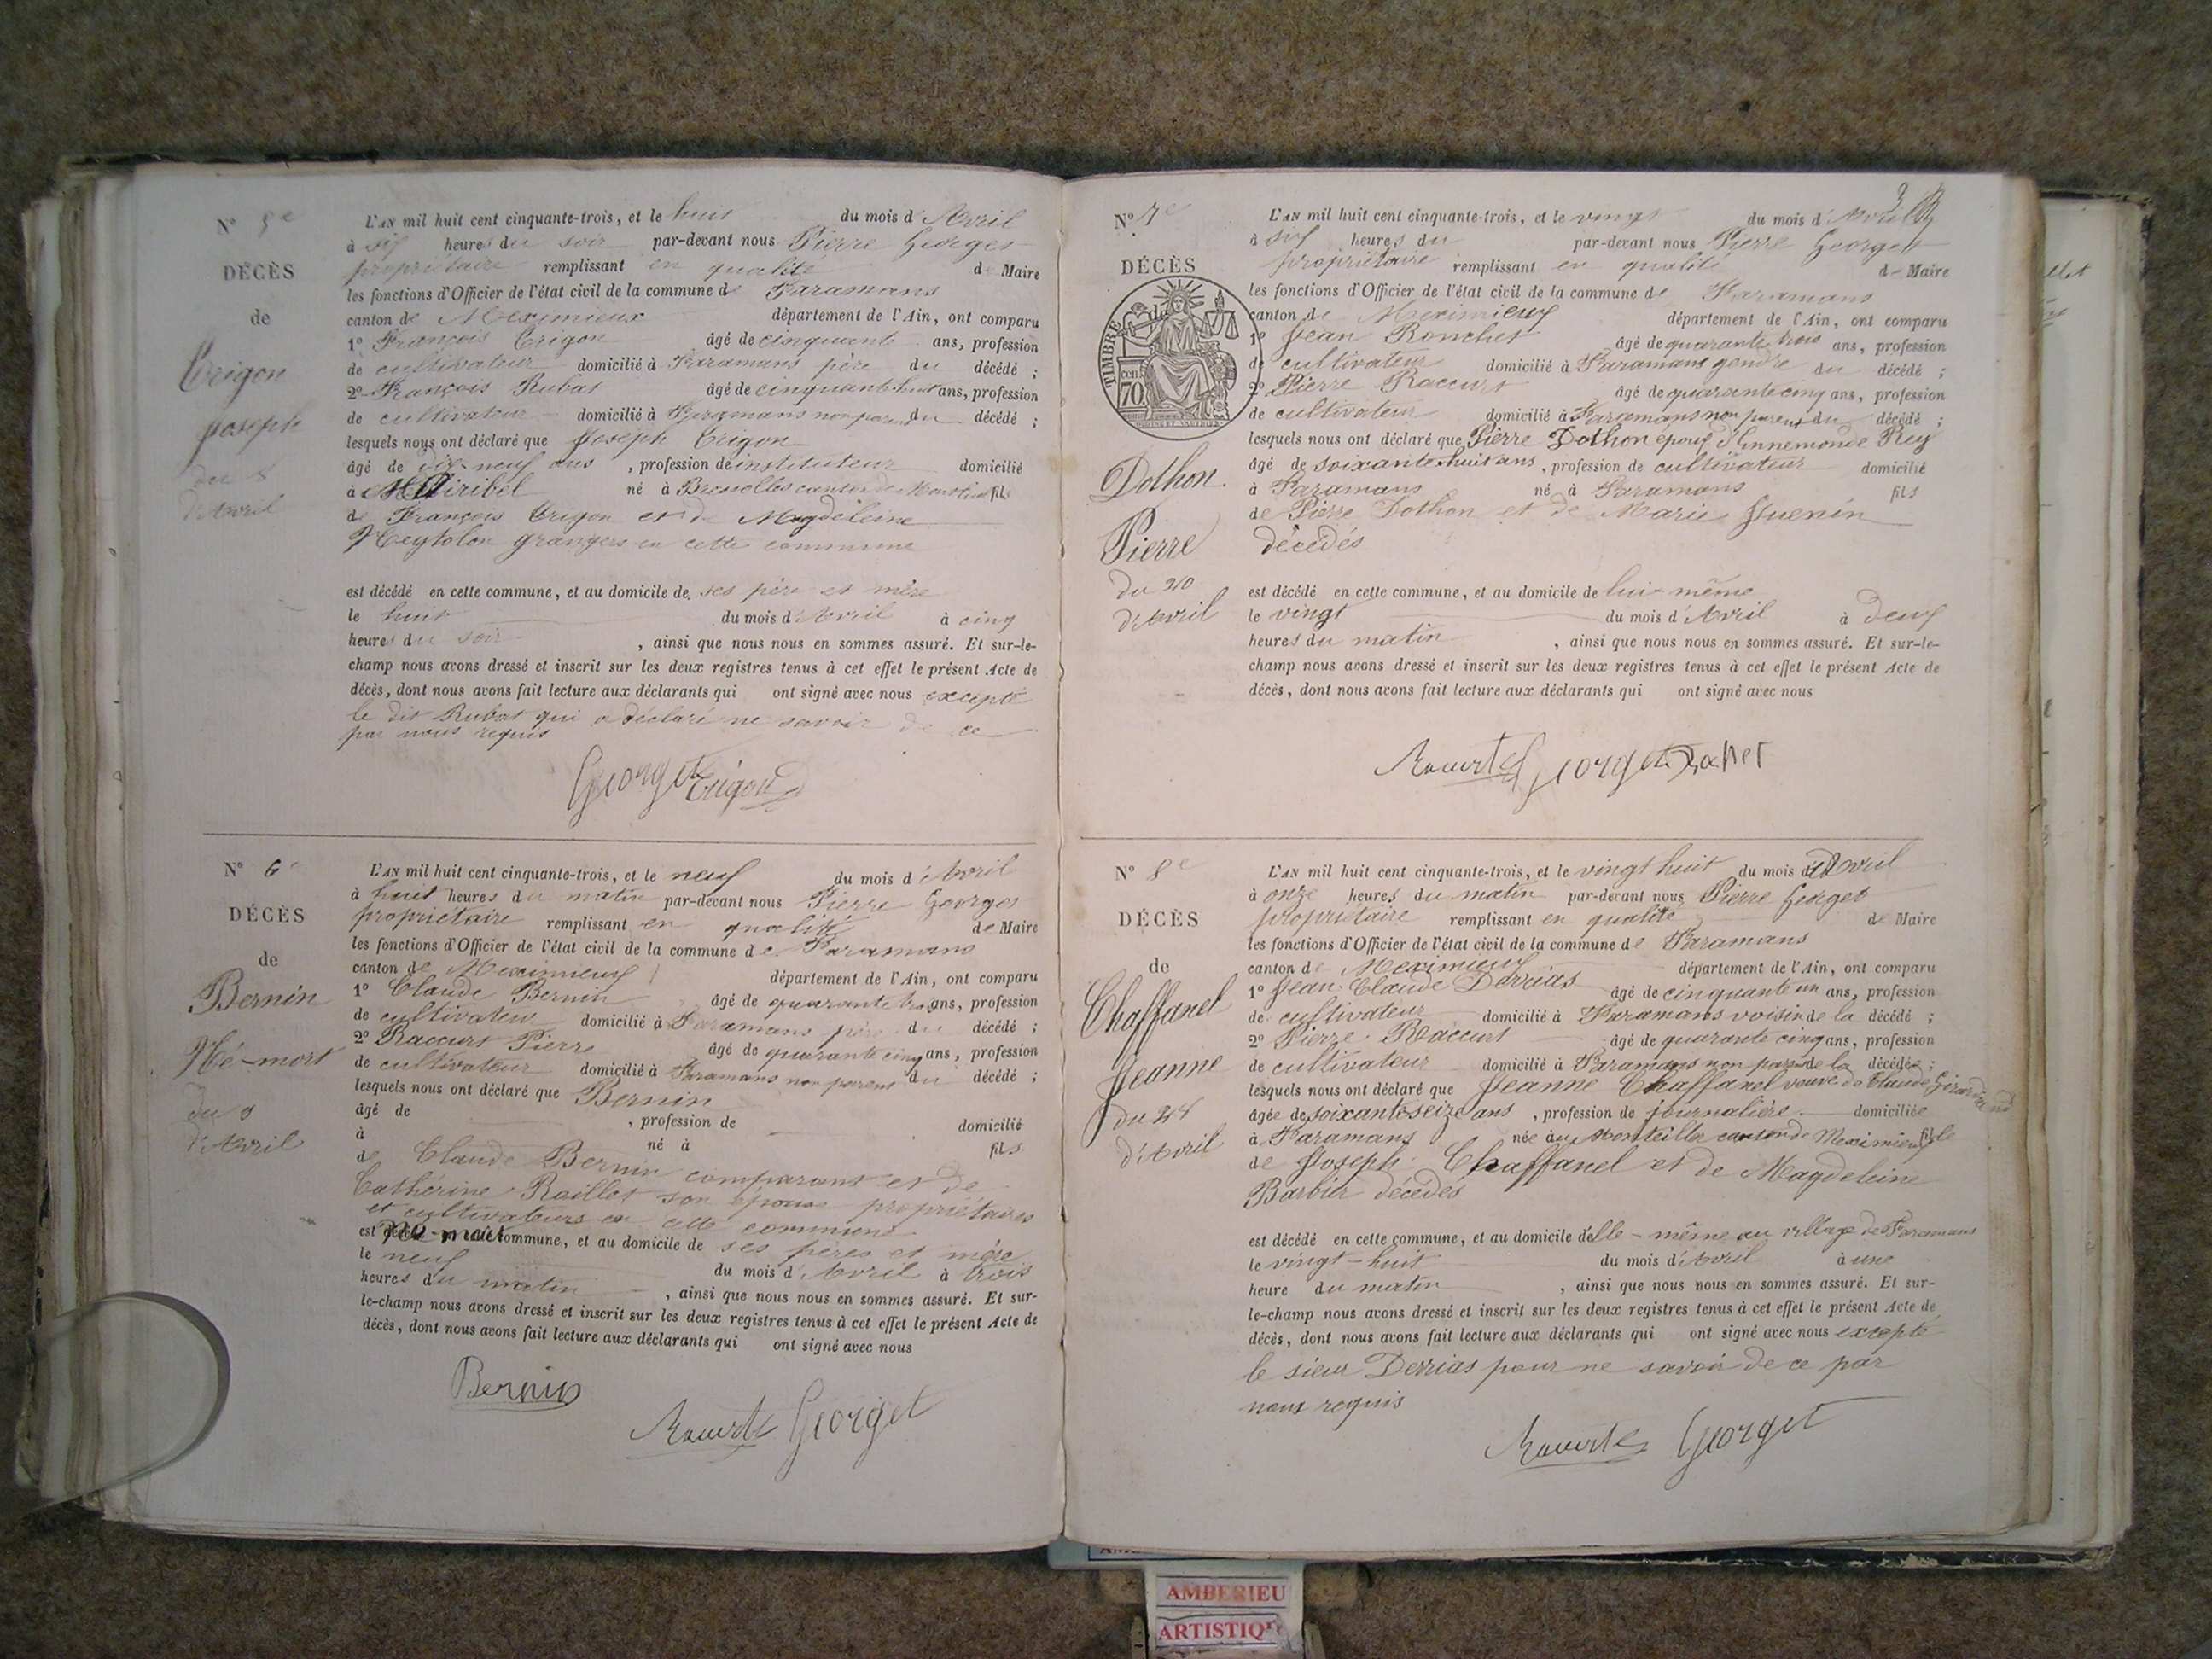 N° 5e
DÉCÈS
de
Trigon
Joseph
du 8
d'Avril
L'AN mil huit cent cinquante-trois, et le huit du mois d'Avril
à six heures du soir par-devant nous Pierre Georget
propriétaire remplissant en qualité de Maire
les fonctions d'Officier de l'état civil de la commune de Faramans
canton de Meximieux département de l'Ain, ont comparu
1° François Trigon âgé de cinquante ans, profession
de cultivateur domicilié à Faramans père du décédé ;
2° François Rubat âgé de cinquante huit ans, profession
de cultivateur domicilié à Faramans non parent du décédé ;
lesquels nous ont déclaré que Joseph Trigon
âgé de dix-neuf ans , profession de instituteur domicilié
à Miribel né à Bressolles canton de fils
de François Trigon et de Magdeleine
grangers en cette commune
est décédé en cette commune, et au domicile de ses père et mère
le huit du mois d'Avril à cinq
heures du soir , ainsi que nous nous en sommes assuré. Et sur-le-
champ nous avons dressé et inscrit sur les deux registres tenus à cet effet le présent Acte de
décès, dont nous avons fait lecture aux déclarants qui ont signé avec nous excepté
le dit Rubat qui a déclaré ne savoir de ce
par nous requis
Georget Trigon
N° 6e
DÉCÈS
de
Bernin
Né-mort
du 9
d'Avril
L'AN mil huit cent cinquante-trois, et le neuf du mois d'Avril
à huit heures du matin par-devant nous Pierre Georget
propriétaire remplissant en qualité de Maire
les fonctions d'Officier de l'état civil de la commune de Faramans
canton de Meximieux département de l'Ain, ont comparu
1° Claude Bernin âgé de quarante trois ans, profession
de cultivateur domicilié à Faramans père du décédé ;
2° Raccurt Pierre âgé de quarante cinq ans, profession
de cultivateur domicilié à Faramans non parent du décédé ;
lesquels nous ont déclaré que Bernin
âgé de , profession de domicilié
à né à fils
de Claude Bernin comparant et de
Cathérine Raillot son épouse propriétaires
et cultivateurs en cette commune
est né-mort commune, et au domicile de ses pères et mère
le neuf du mois d'Avril à trois
heures du matin , ainsi que nous nous en sommes assuré. Et sur-
le-champ nous avons dressé et inscrit sur les deux registres tenus à cet effet le présent Acte de
décès, dont nous avons fait lecture aux déclarants qui ont signé avec nous
Bernin
Raccurt Georget
N° 7e
DÉCÈS
de
TIMBRE
70 cen
Dothon
Pierre
du 20
d'Avril
L'AN mil huit cent cinquante-trois, et le vingt du mois d'Avril
à six heures du par-devant nous Pierre Georget
propriétaire remplissant en qualité de Maire
les fonctions d'Officier de l'état civil de la commune de Faramans
canton de Meximieux département de l'Ain, ont comparu
1° Jean Ronchet âgé de quarante trois ans, profession
de cultivateur domicilié à Faramans gendre du décédé ;
2° Pierre Raccurt âgé de quarante cinq ans, profession
de cultivateur domicilié à Faramans non parent du décédé ;
lesquels nous ont déclaré que Pierre Dothon époux d'Ennemonde Rey
âgé de soixante-huit ans , profession de cultivateur domicilié
à Faramans né à Faramans fils
de Pierre Dothon et de Marie Juenin
décédés
est décédé en cette commune, et au domicile de lui-même
le vingt du mois d'Avril à deux
heures du matin , ainsi que nous nous en sommes assuré. Et sur-le-
champ nous avons dressé et inscrit sur les deux registres tenus à cet effet le présent Acte de
décès, dont nous avons fait lecture aux déclarants qui ont signé avec nous
Raccurt Georget
N° 8e
DÉCÈS
de
Chaffanel
Jeanne
du 28
d'Avril
L'AN mil huit cent cinquante-trois, et le vingt huit du mois d'Avril
à onze heures du matin par-devant nous Pierre Georget
propriétaire remplissant en qualité de Maire
les fonctions d'Officier de l'état civil de la commune de Faramans
canton de Meximieux département de l'Ain, ont comparu
1° Jean-Claude Derrias âgé de cinquante un ans, profession
de cultivateur domicilié à Faramans voisin de la décédé ;
2° Pierre Raccurt âgé de quarante cinq ans, profession
de cultivateur domicilié à Faramans non parent de la décédée ;
lesquels nous ont déclaré que Jeanne Chaffanel veuve de Claude
âgée de soixante-seize ans , profession de journalière domiciliée
à Faramans née au Montellier canton de Meximieux fille
de Joseph Chaffanel et de Magdeleine
Barbier décédés
est décédé en cette commune, et au domicile d'elle-même au village de Faramans
le vingt-huit du mois d'Avril à une
heure du matin , ainsi que nous nous en sommes assuré. Et sur-
le-champ nous avons dressé et inscrit sur les deux registres tenus à cet effet le présent Acte de
décès, dont nous avons fait lecture aux déclarants qui ont signé avec nous excepté
le sieur Derrias pour ne savoir de ce par
nous requis
Raccurt Georget
AMBERIEU
ARTISTIQUE